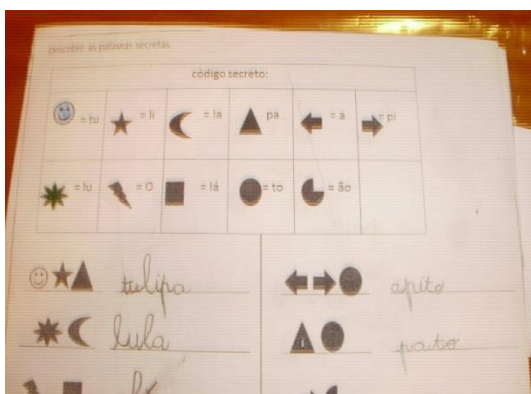 Descobre as palavras secretas.
código secreto:
= tu = li = la pa = a = pi
= lu = O = lá = to = ão
tulipa apito
lula pato